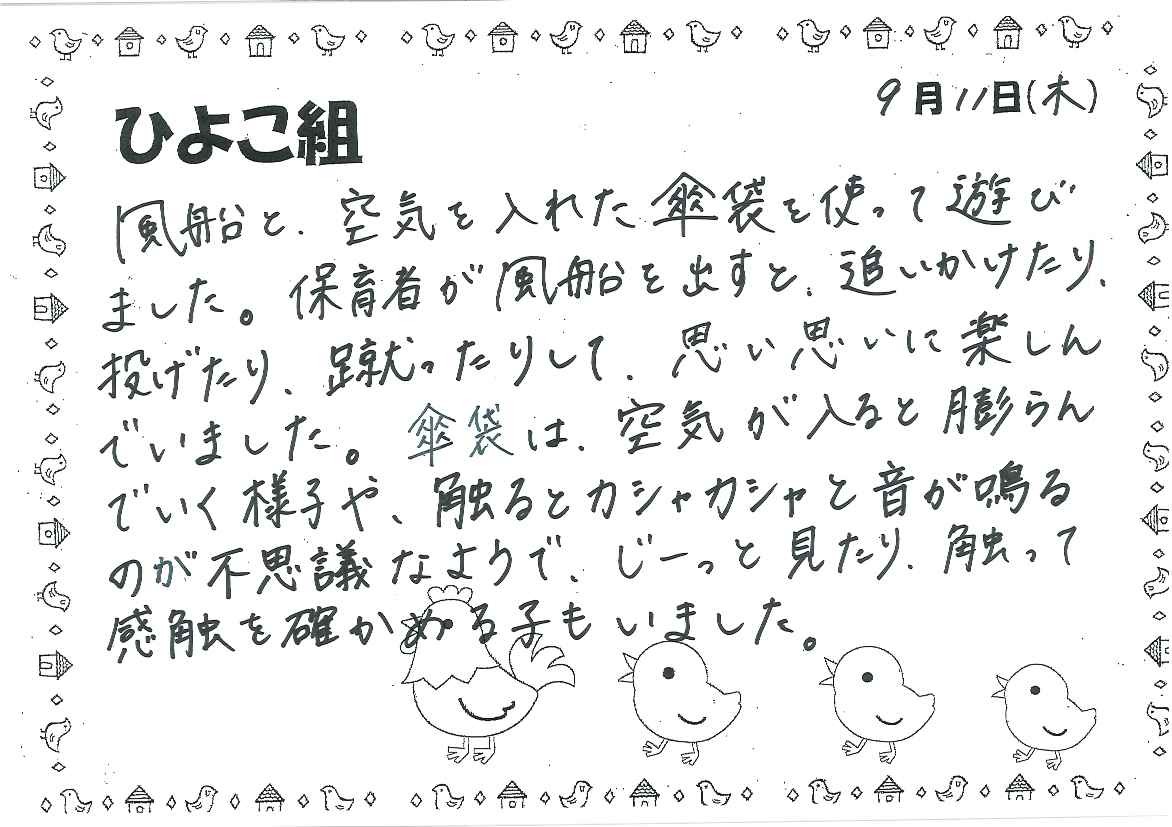 9月11日(木)
ひよこ組
風船と、空気を入れた傘袋を使って遊び
ました。保育者が風船を出すと、追いかけたり、
投げたり、蹴ったりして、思い思いに楽しん
でいました。傘袋は、空気が入ると膨らん
でいく様子や、触るとカシャカシャと音が鳴る
のが不思議なようで、じーっと見たり、触って
感触を確かめる子もいました。